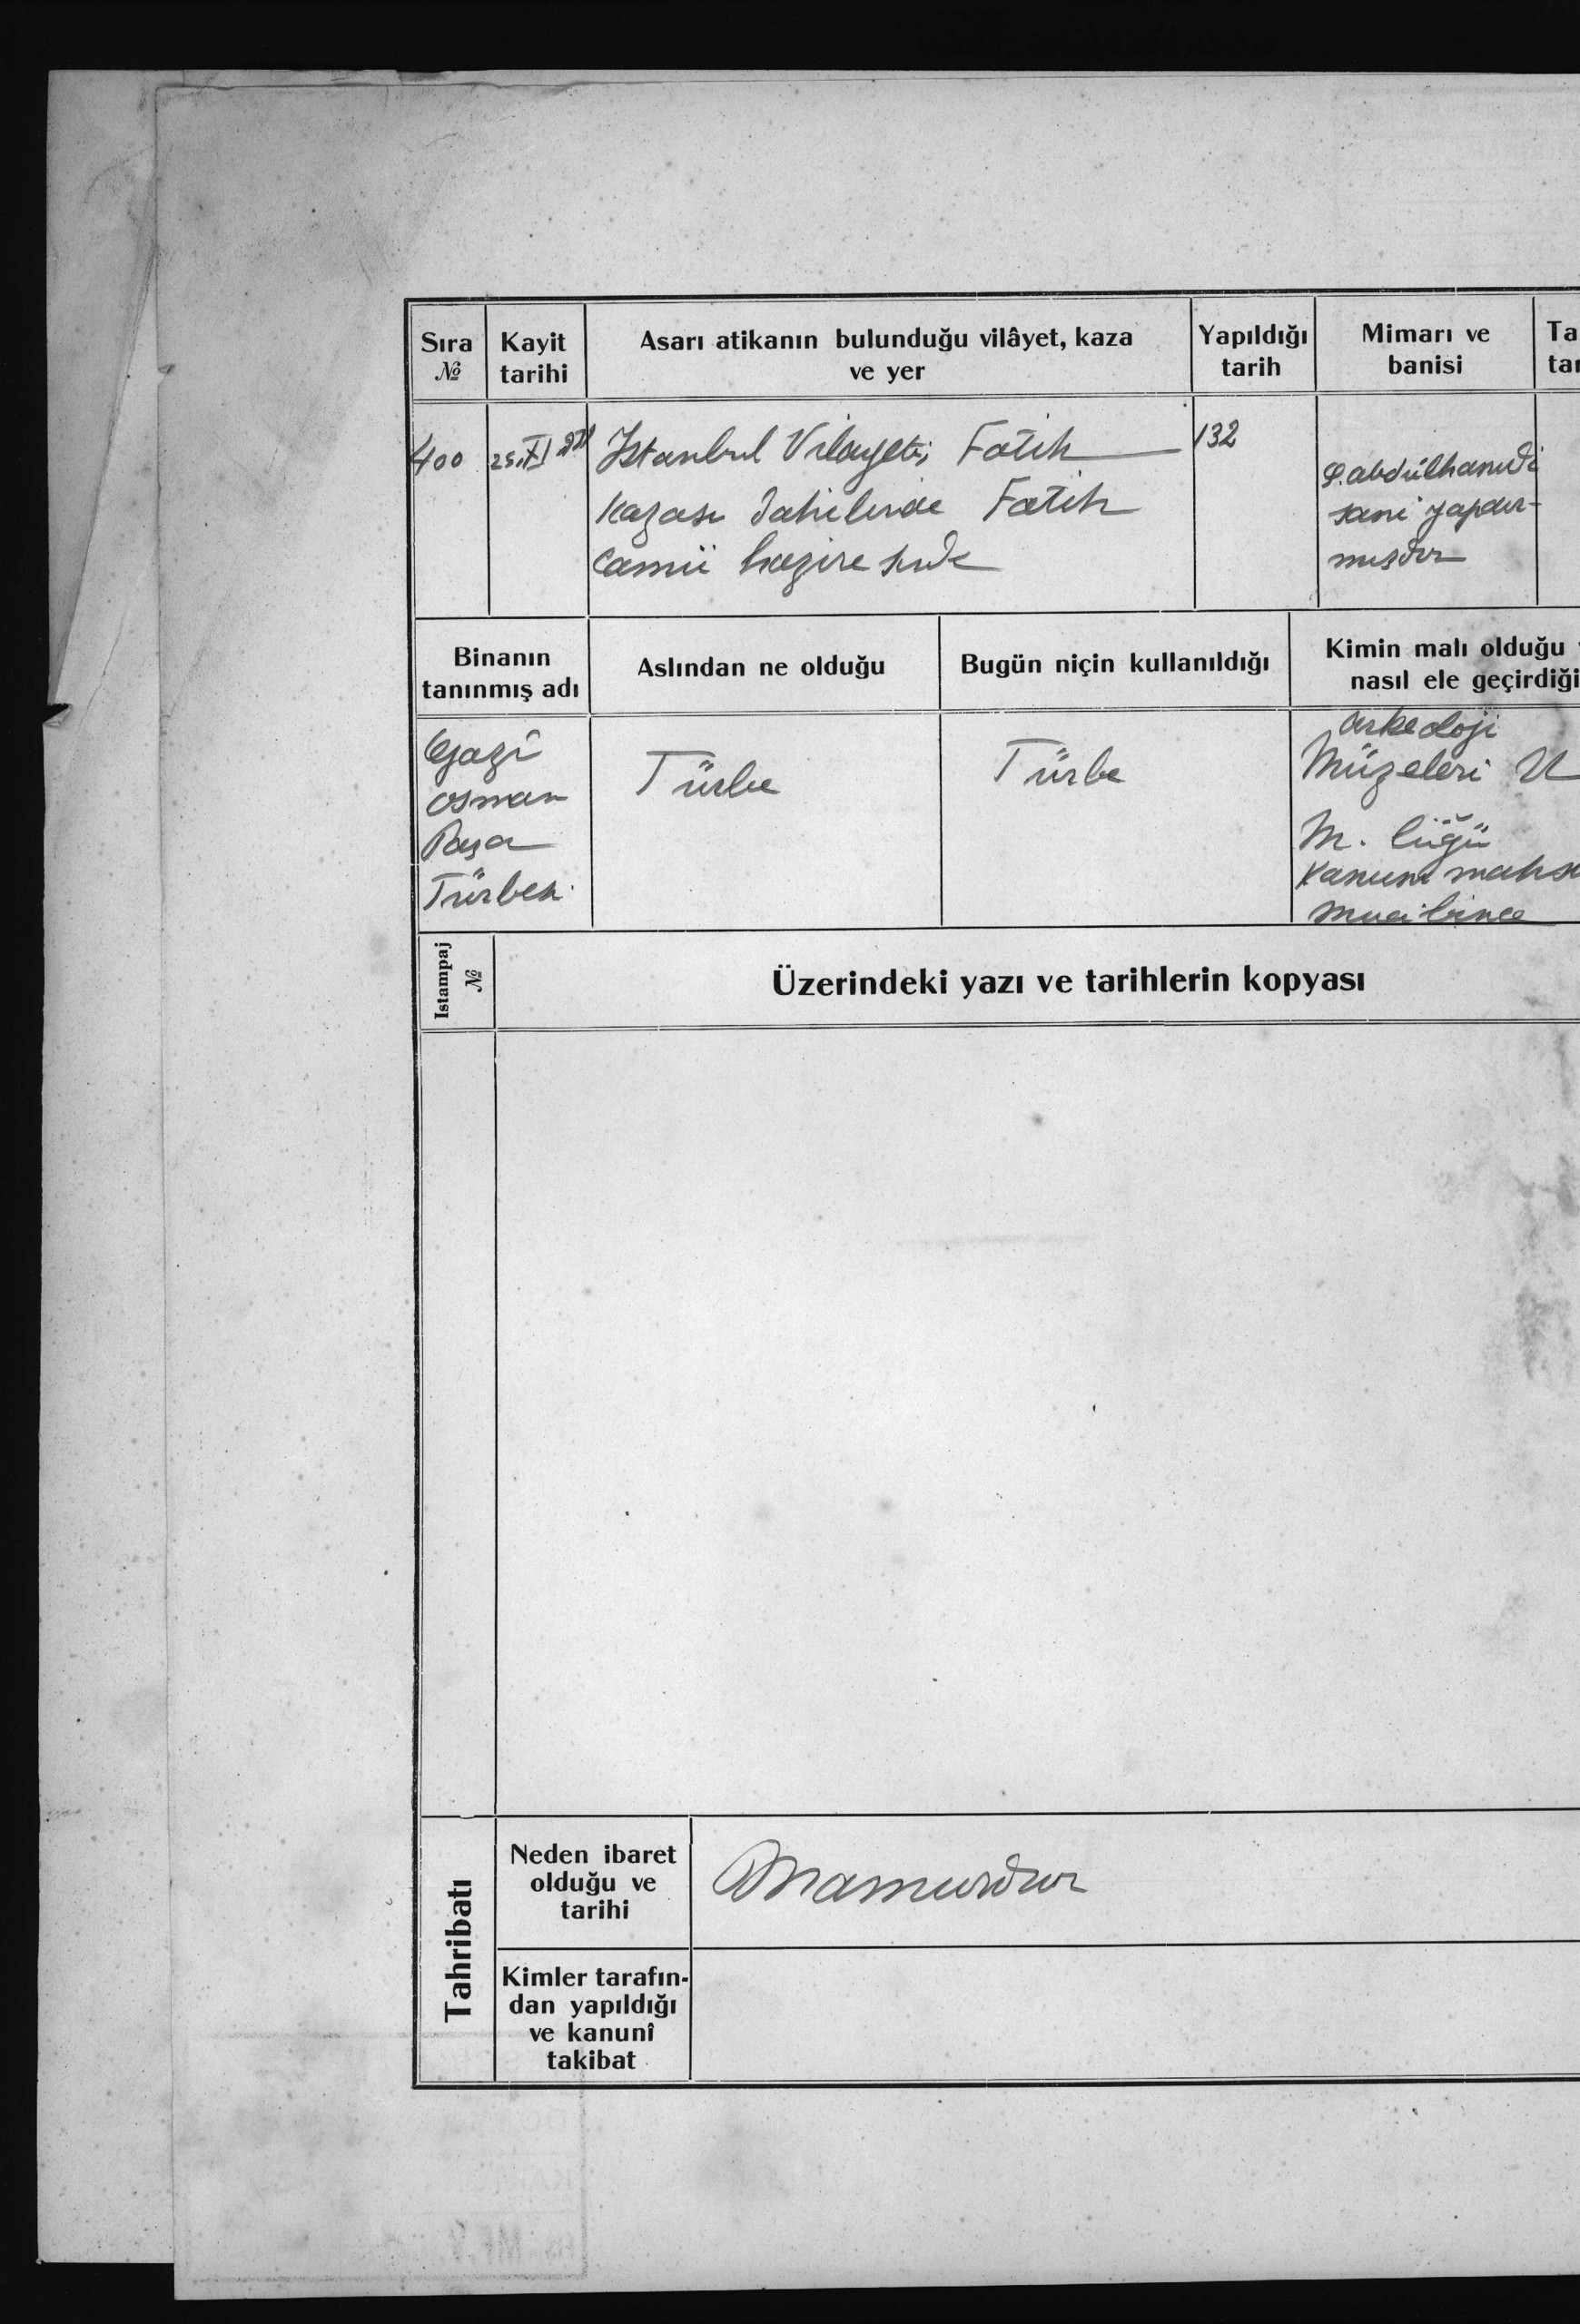 Sıra № Kayit tarihi Asarı atikanın bulunduğu vilâyet, kaza ve yer Yapıldığı tarih Mimarı ve banisi Ta tar
400
Istanbul Vilayeti, Fatih
Kazası dahilinde Fatih
Camii haziresinde
132
S. abdülhamidi
sani yapdır-
mışdır
Binanın tanınmış adı
Aslından ne olduğu
Bugün niçin kullanıldığı
Kimin malı olduğu
nasıl ele geçirdiği
Gazi
Osman
Paşa
Türbesi
Türbe
Türbe
Arkeoloji
Müzeleri U
M. lüğü
Kanunı mahsu
mucibince
Istampaj №
Üzerindeki yazı ve tarihlerin kopyası
Tahribatı
Neden ibaret
olduğu ve
tarihi
Mamurdur
Kimler tarafın-
dan yapıldığı
ve kanunî
takibat